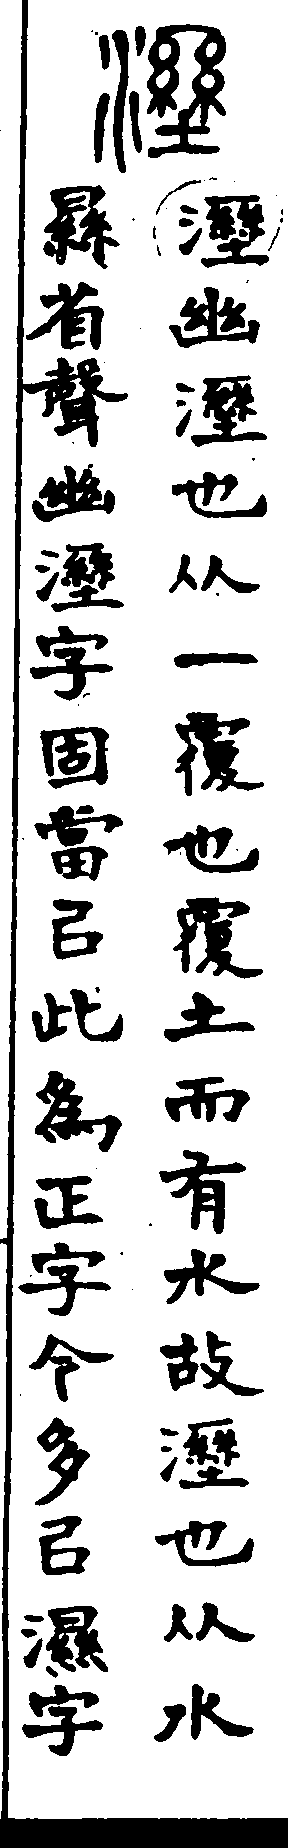 溼
溼幽溼也从一覆也覆土而有水故溼也从水
㬎省聲幽溼字固當㠯此爲正字今多㠯濕字